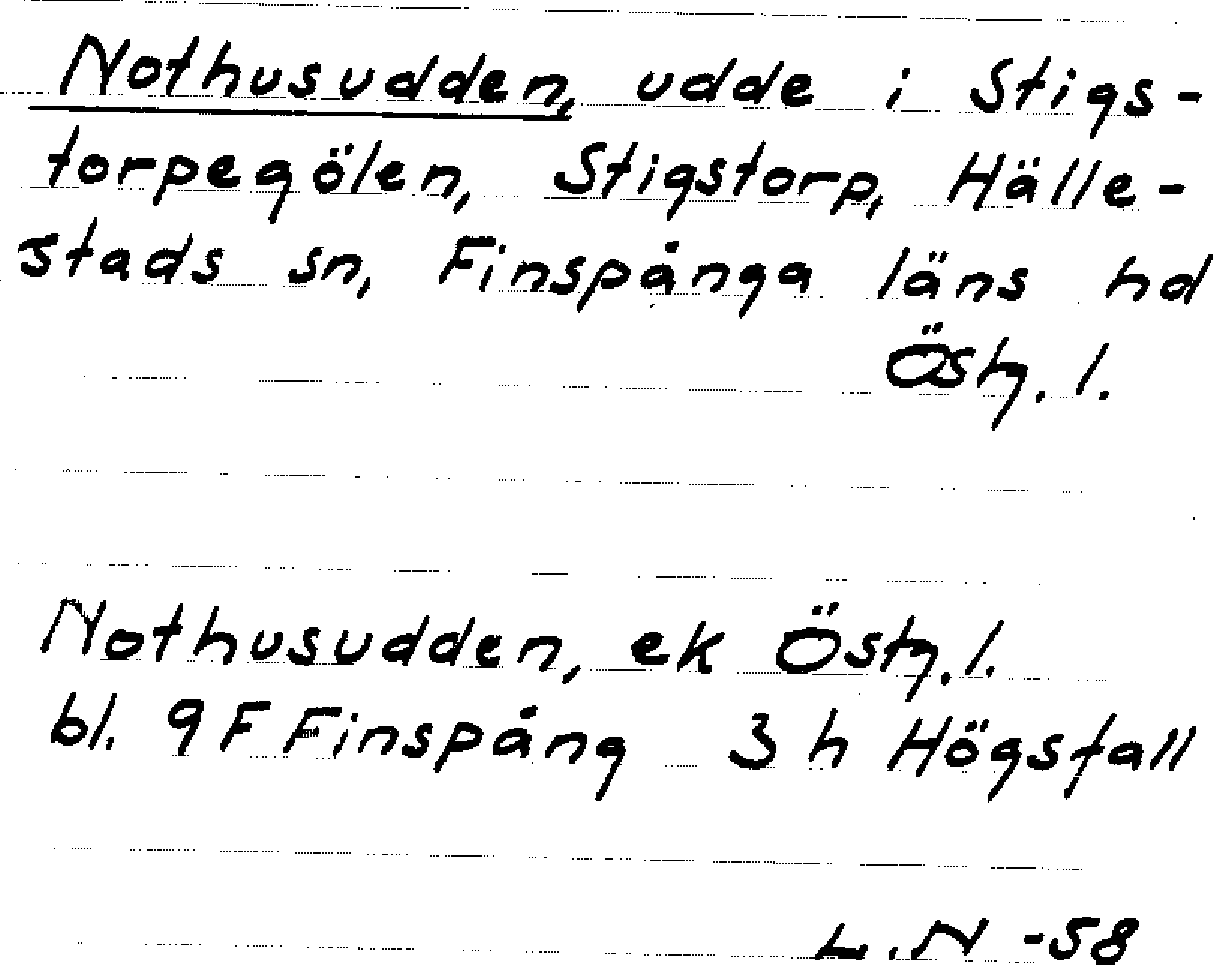 Nothusudden, udde i Stigs-
torpegölen, Stigstorp, Hälle-
stads sn, Finspånga läns hd
Östg. l.
Nothusudden, ek Östg. l.
bl. 9 F Finspång 3 h Högsfall
L. N -58